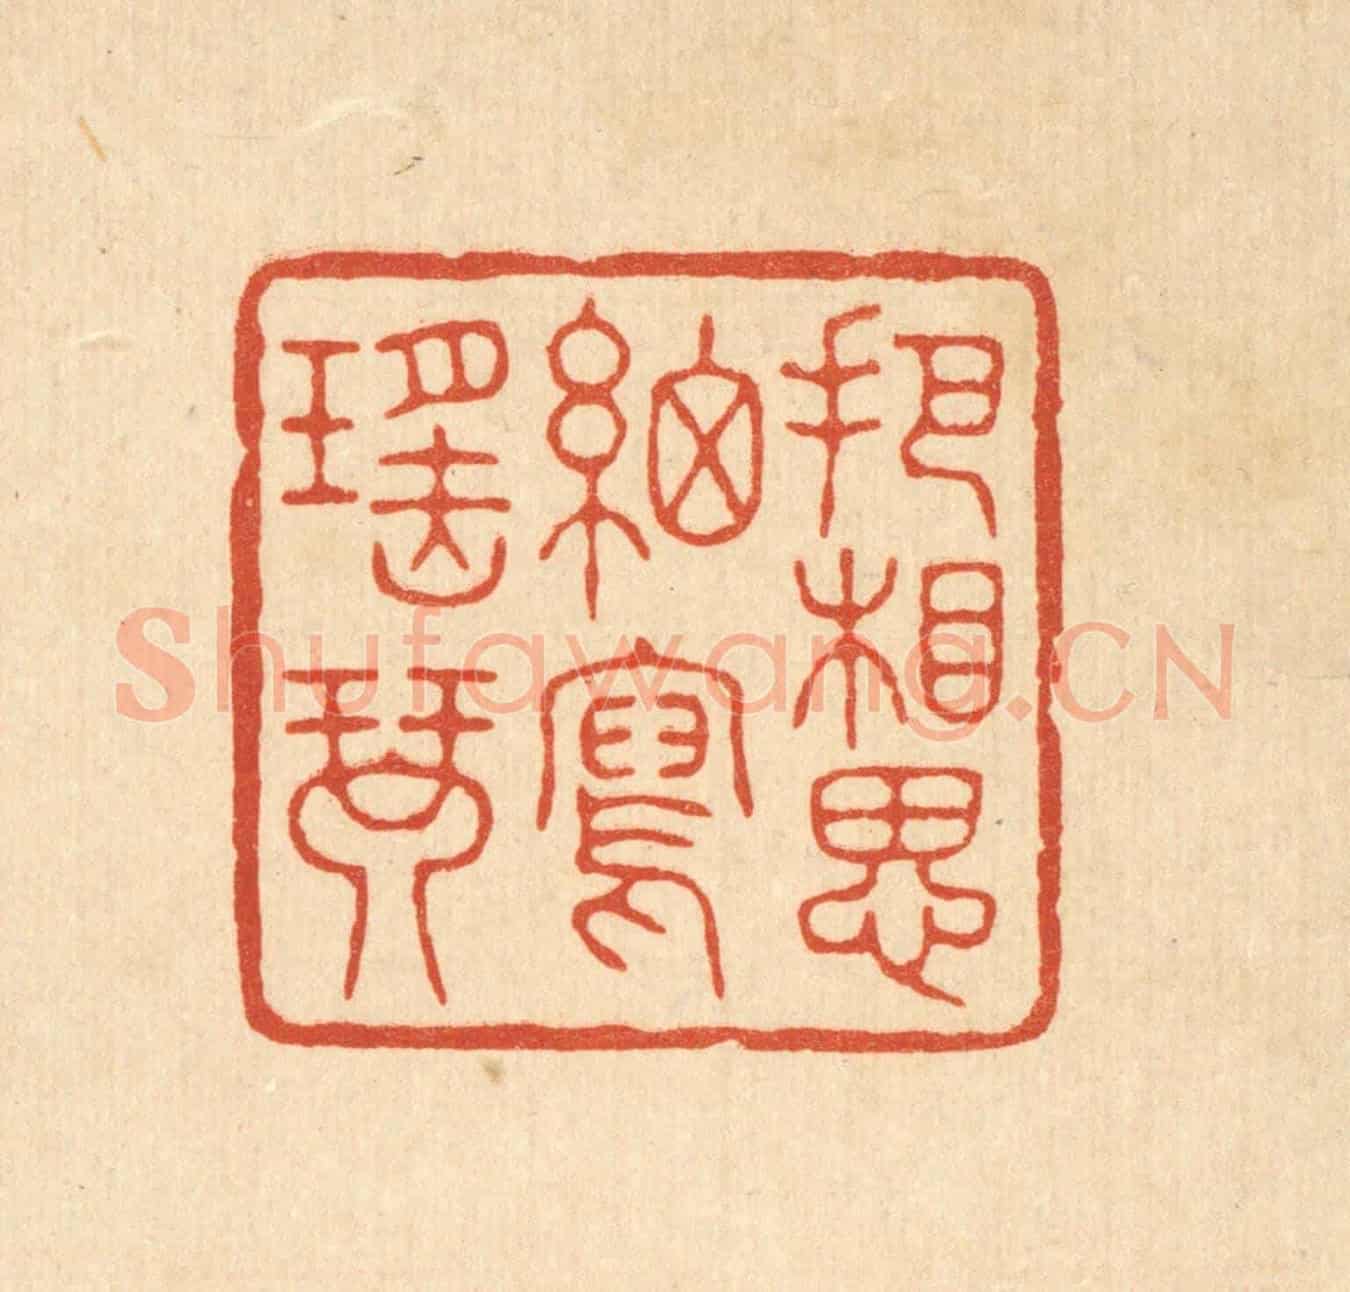 把相思
細寫
瑤琴
Shufawang.CN